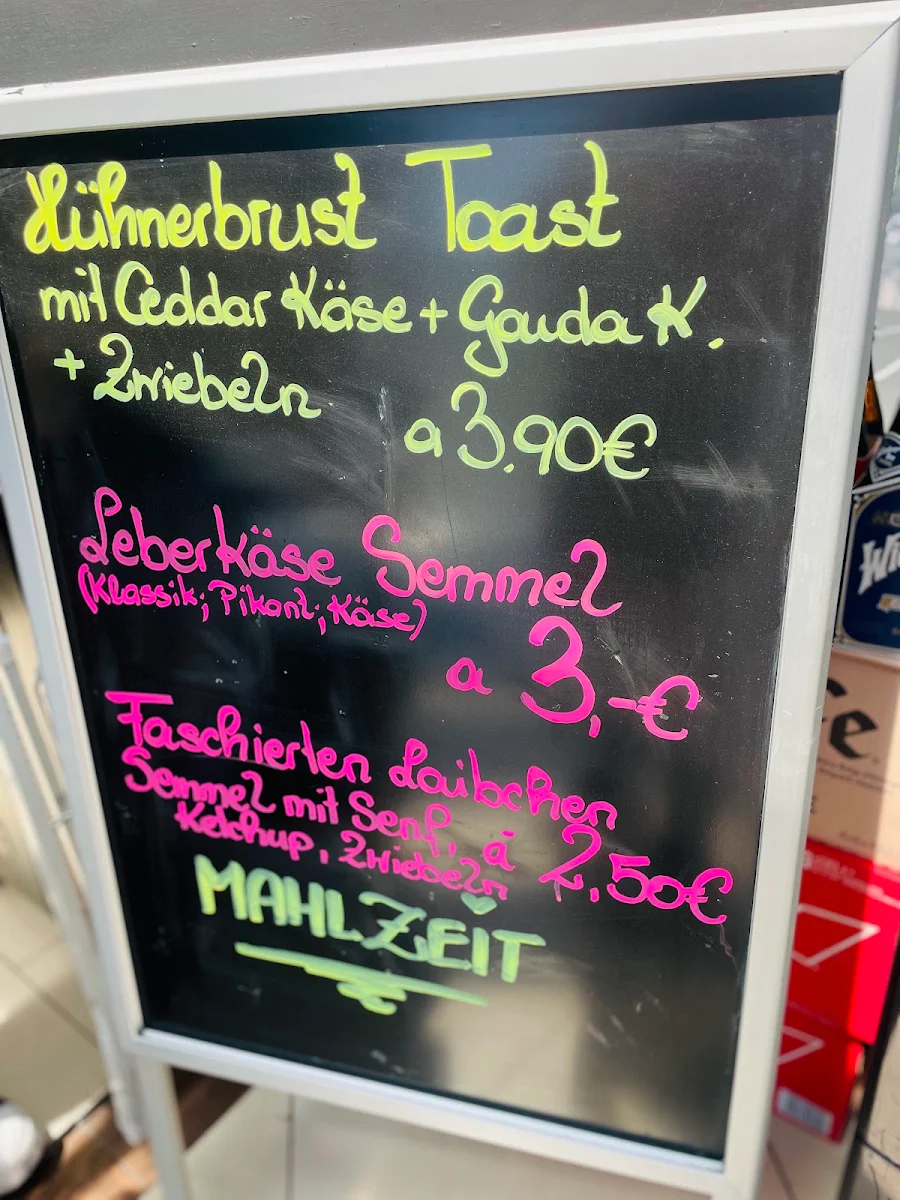 Hühnerbrust Toast
mit Ceddar Käse + Gouda K.
+ Zwiebeln a 3.90€
Leberkäse Semmel
(Klassik; Pikant; Käse)
a 3,-€
Faschierten Laibchen
Semmel mit Senf, á 2,50€
Ketchup, Zwiebeln
MAHLZEIT